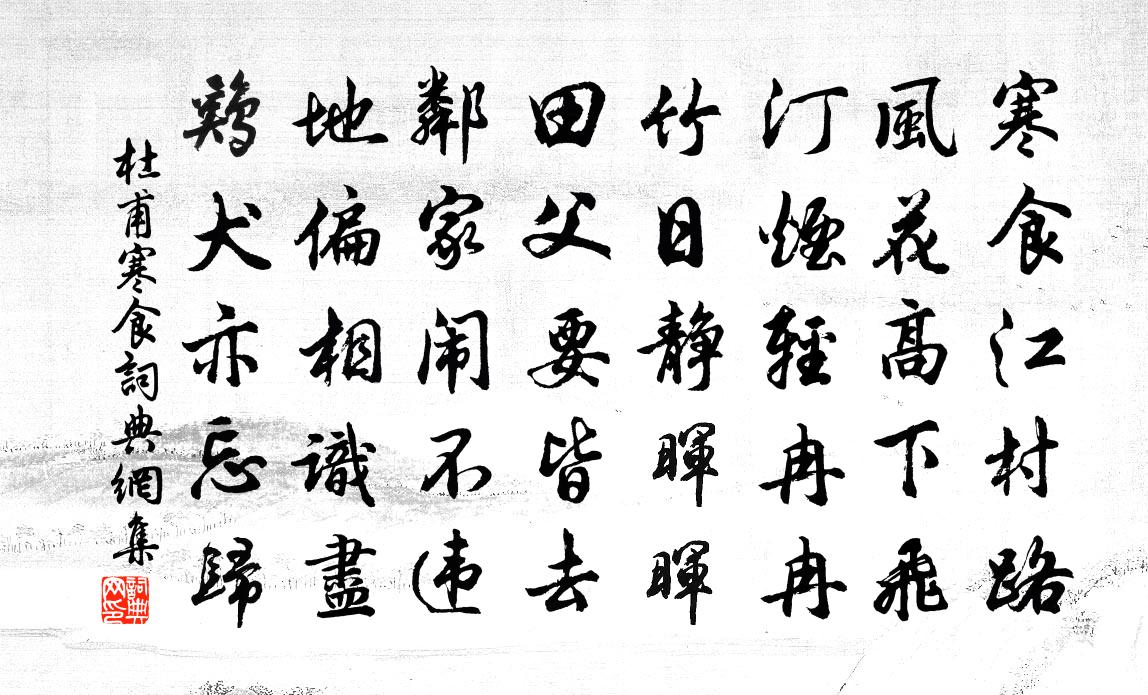 寒食江村路
風花髙下飛
汀煙輕冉冉
竹日静暉暉
田父要皆去
鄰家闹不违
地偏相識盡
鷄犬亦忘歸
杜甫寒食詞典網集
詞典
网印